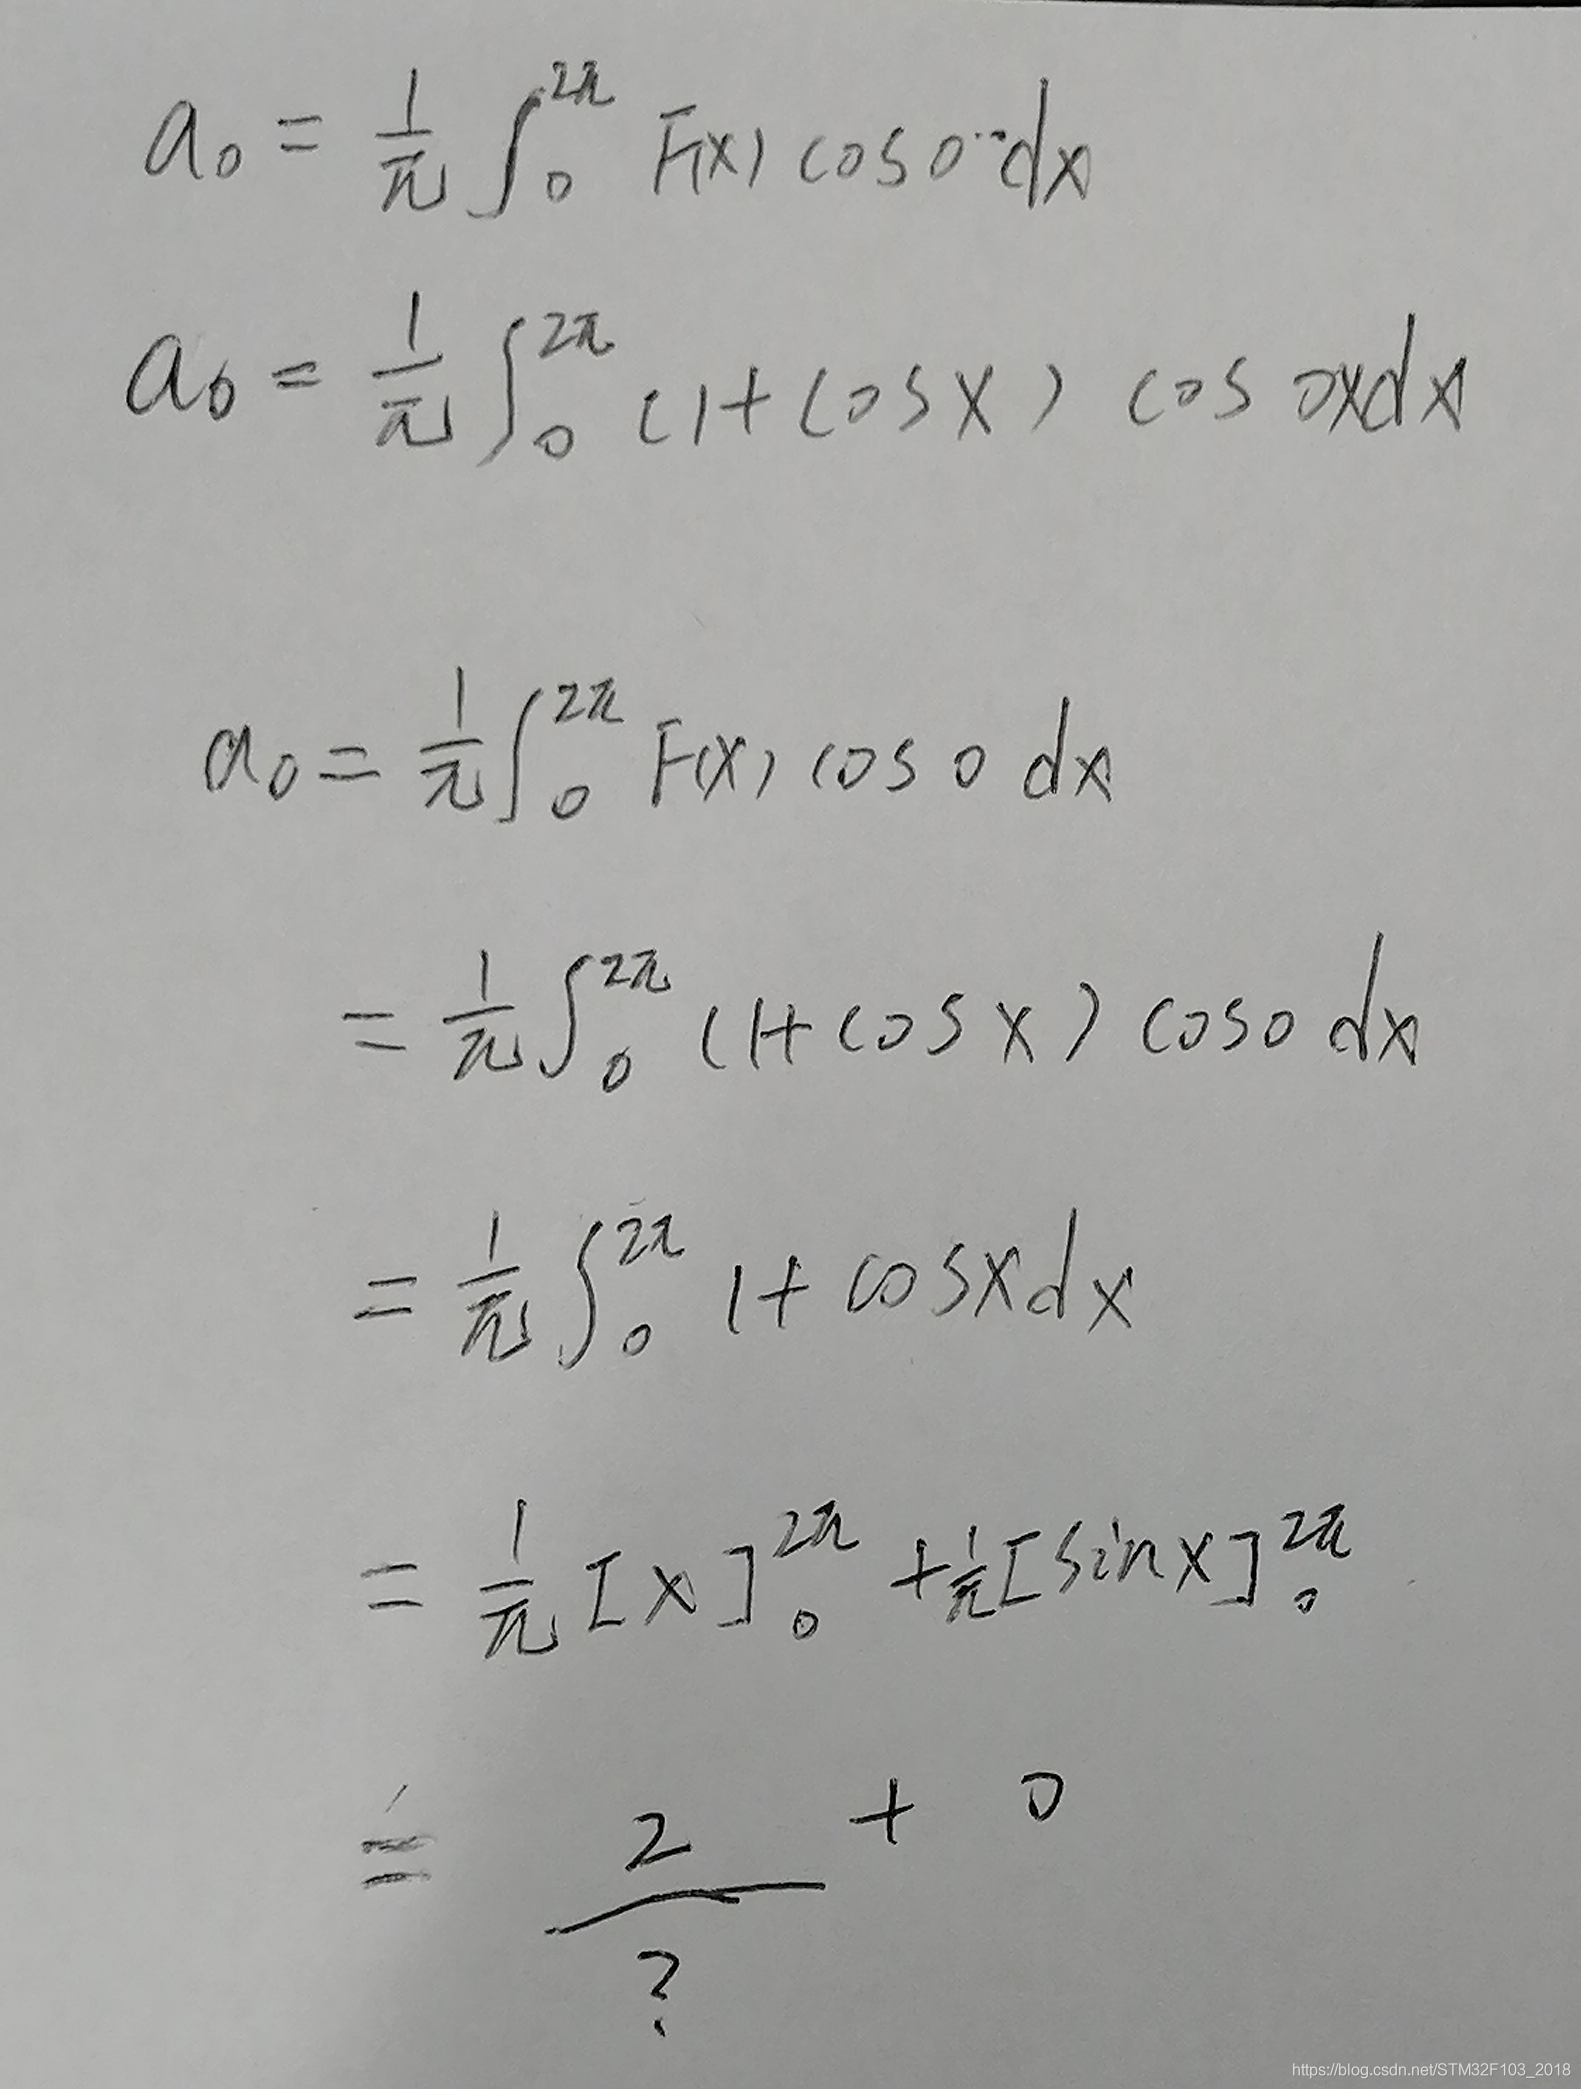 a₀ = 1/π ∫₀^2π F(x) cos0 dx
a₀ = 1/π ∫₀^2π (1+cosx) cos 0xdx
a₀ = 1/π ∫₀^2π F(x) cos 0 dx
= 1/π ∫₀^2π (1+cosx) cos0 dx
= 1/π ∫₀^2π 1+cosxdx
= 1/π [x]₀^2π + 1/π [sinx]₀^2π
= 2 + 0
?
https://blog.csdn.net/STM32F103_2018